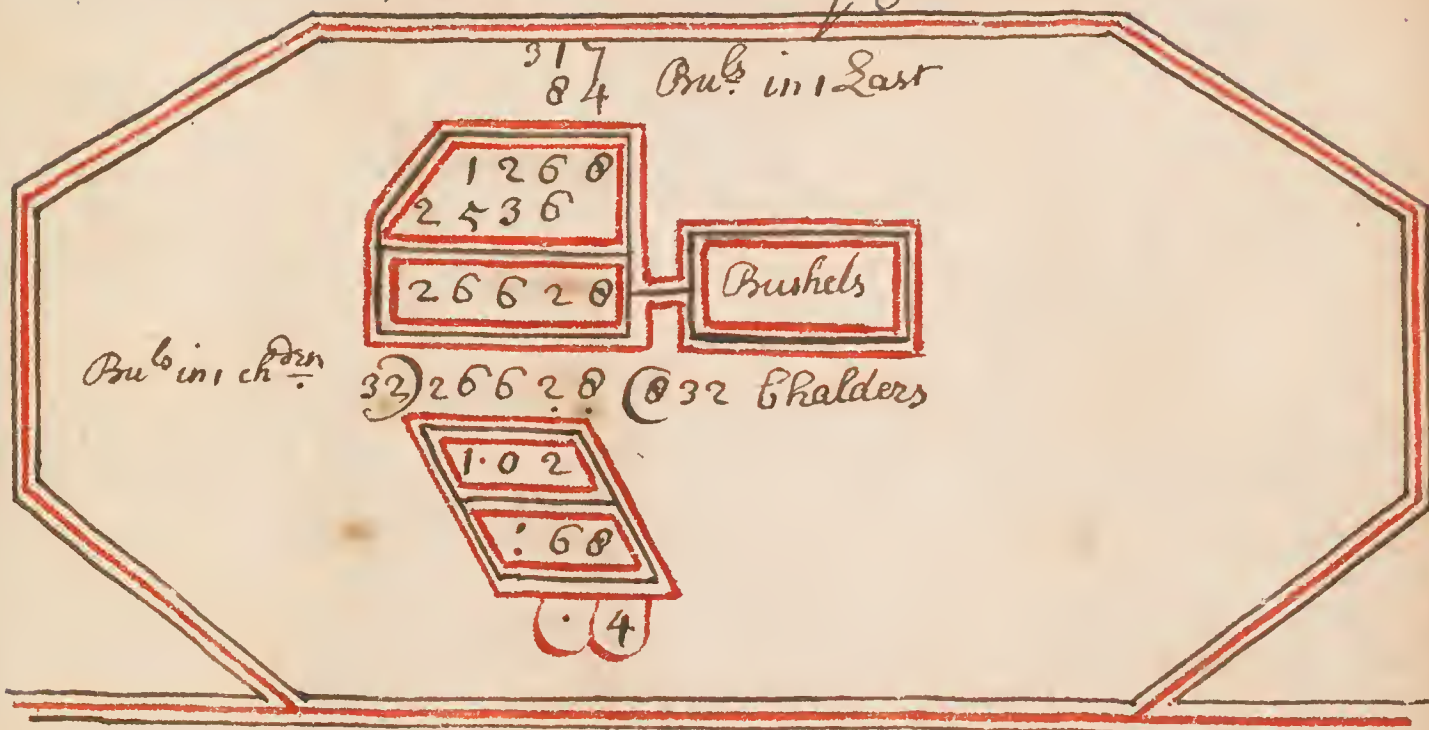 317
84 Buls in 1 Last
1268
2536
26628 Bushels
Buls in 1 chdrn 32)26628(832 Chalders
1·02
:68
· 4